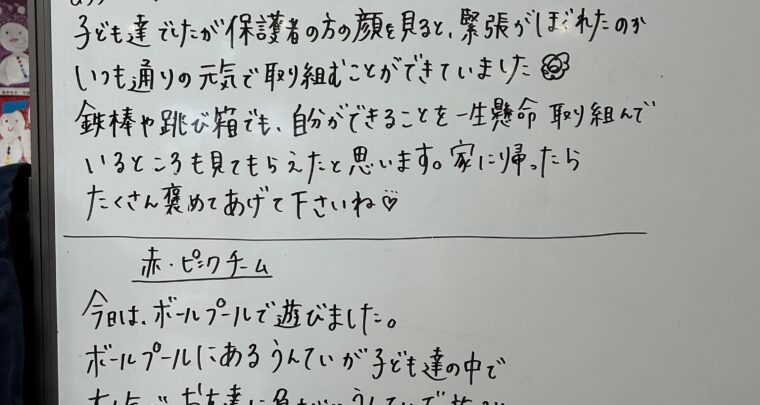 子ども達でしたが保護者の方の顔を見ると、緊張がほぐれたのか
いつも通りの元気で取り組むことができていました
鉄棒や跳び箱でも、自分ができることを一生懸命取り組んで
いるところも見てもらえたと思います。家に帰ったら
たくさん褒めてあげて下さいね♡
赤・ピンクチーム
今日は、ボールプールで遊びました。
ボールプールにあるうんていが子ども達の中で